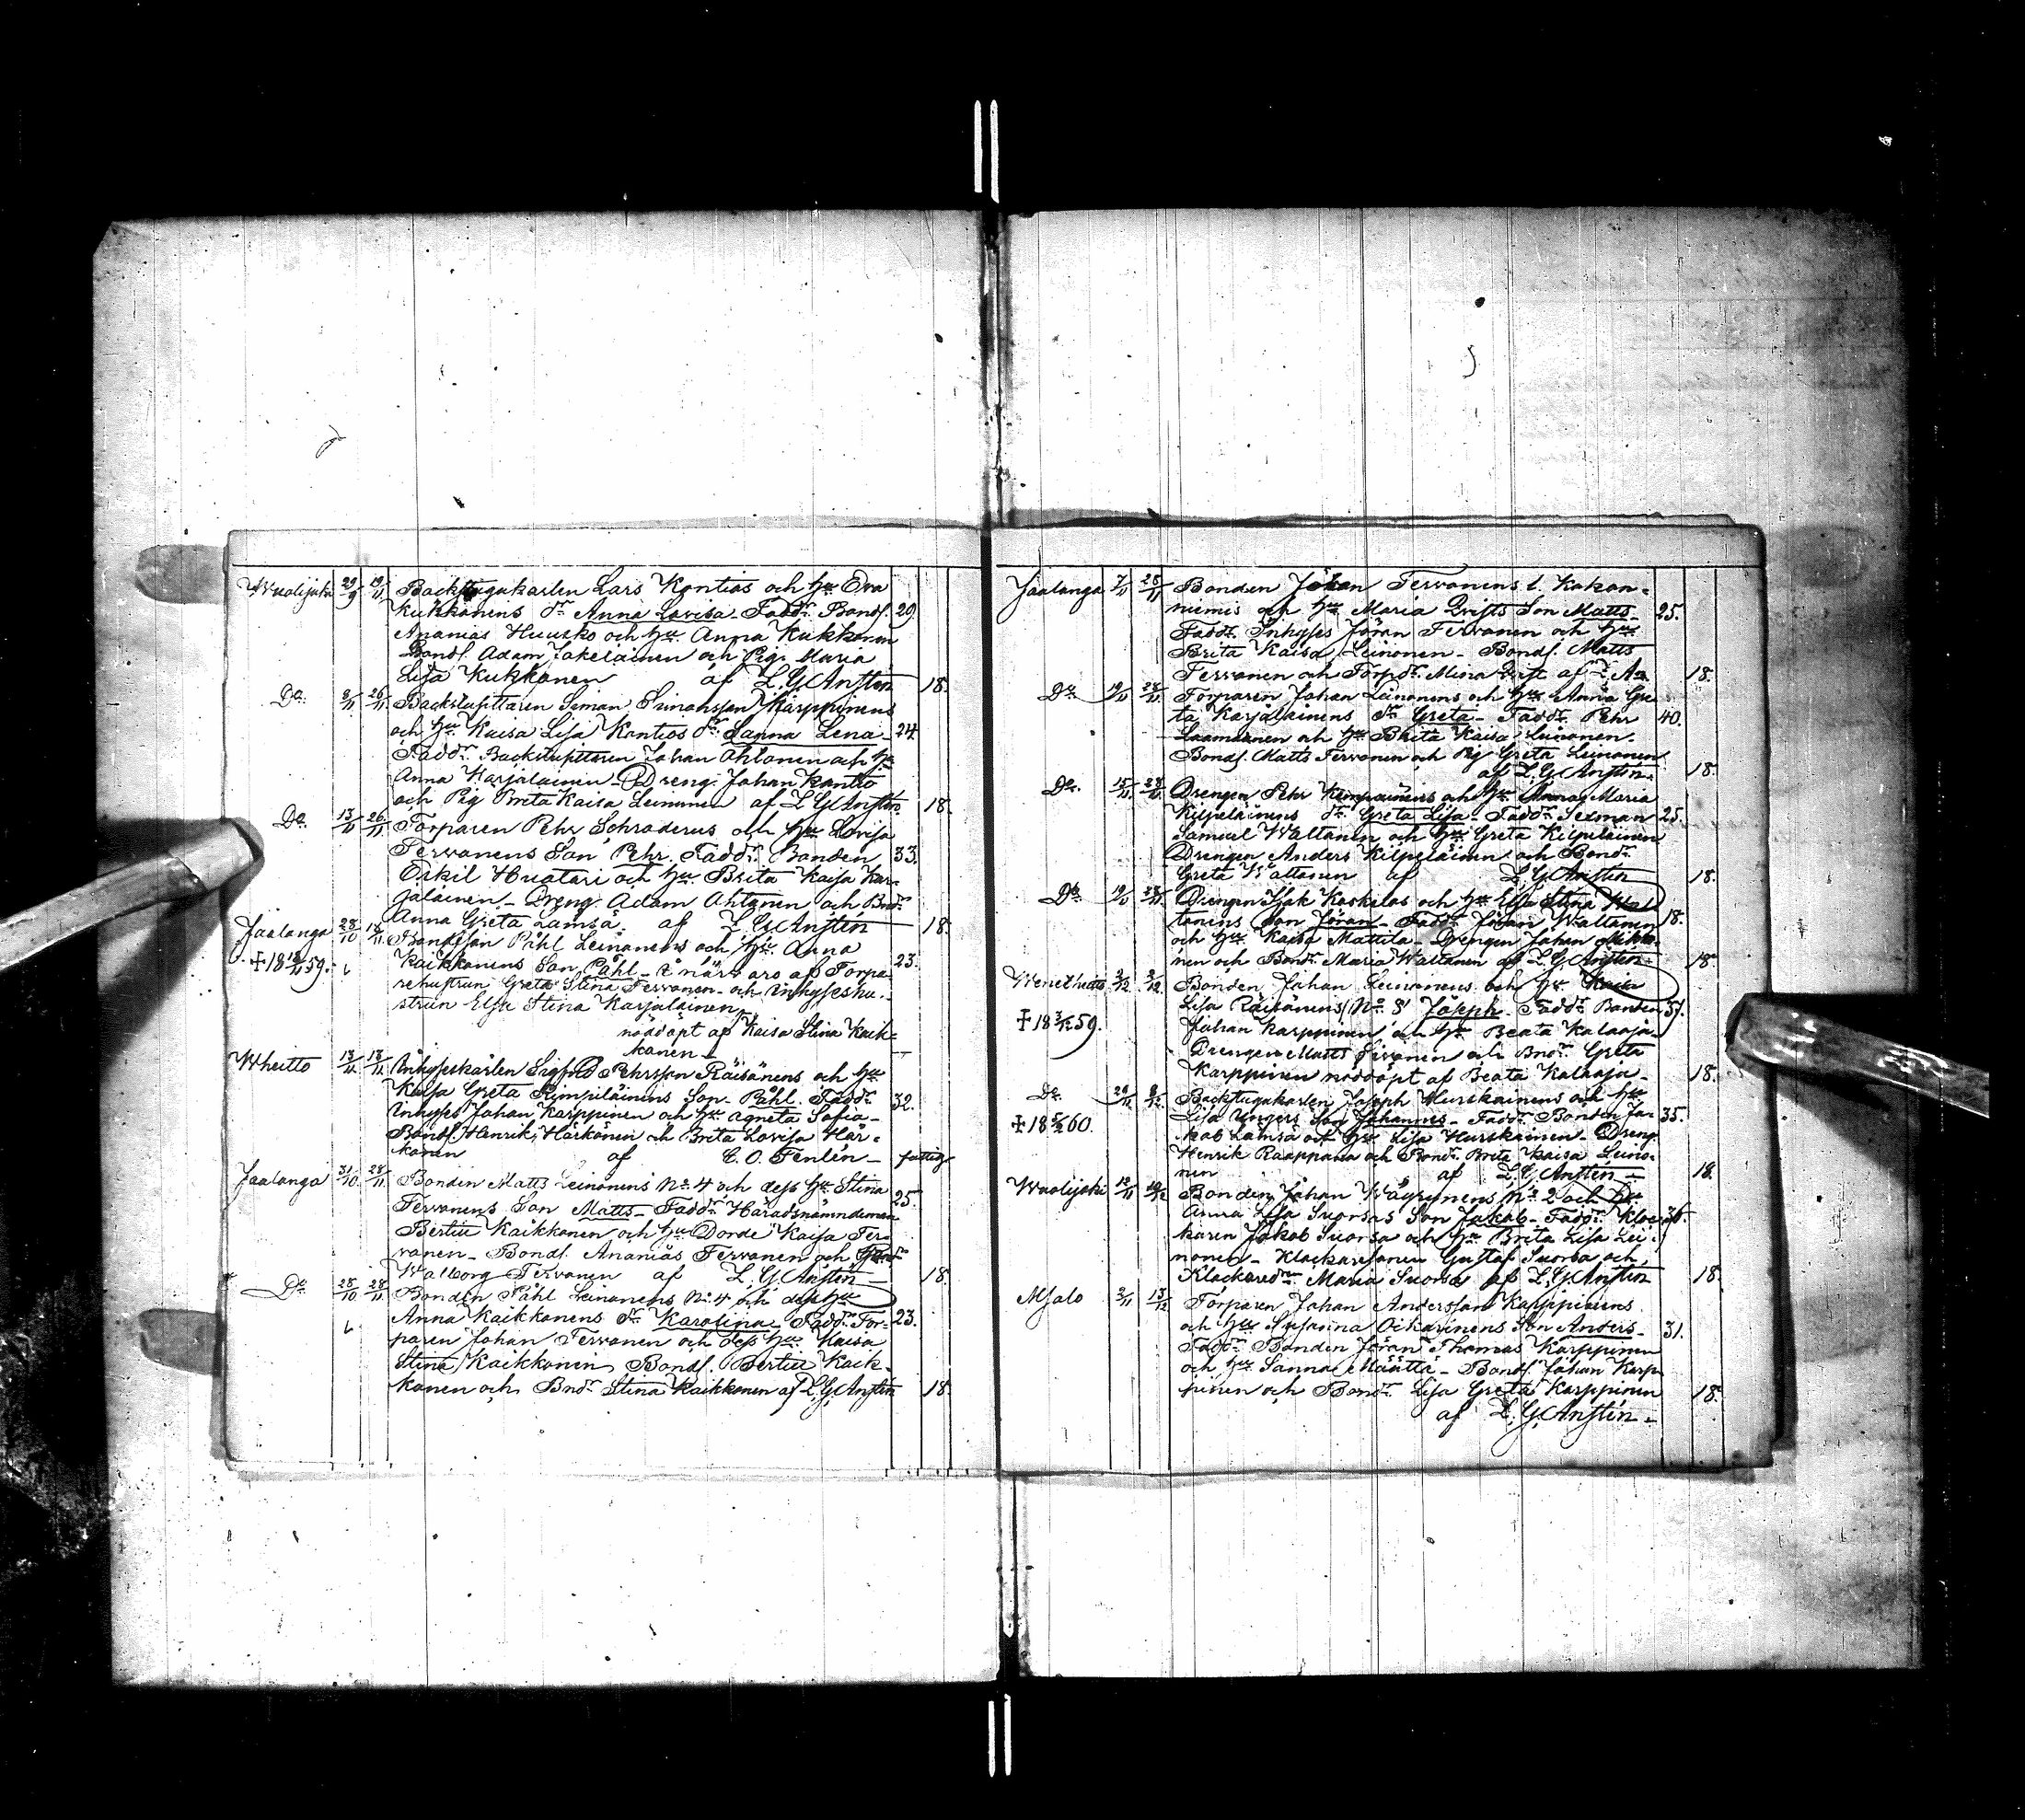 Wuolijoki 29/9 19/11 Backstugukarlen Lars Kontios och Hu Eva
Kukkonens dr Anna Lovisa - Faddr Bonds. 29.
Ananias Huusko och Hu Anna Kukkonen
Bonds. Adam Jakeläinen och Pig. Maria
Lisa Kukkonen af L. G. Anstén 18.
Do 8/11 26/11 Backstusittaren Siman Simonsson Karppinens
och Hu Kaisa Lisa Kontios dr Sanna Lena - 24.
Faddr Backstusittaren Johan Ahtonen och Hu
Anna Karjalainen - Dreng. Johan Kontio
och Pig Brita Kaisa Leinonen af L. G. Anstén 18.
Do 13/11 26/11 Torparen Pehr Schroderus och Hu Lovisa
Tervonens Son Pehr. Faddr Bonden 33.
Eskil Huotari och Hu Brita Kaisa Kar-
jalainen - Dreng. Adam Ahtonen och Bndr
Anna Greta Lamsä af L. G. Anstén 18.
Jaalanga 28/10 18/11 Bondeson Påhl Leinonens och Hu Anna
✝ 18 18/11 59. Kaikkonens Son Påhl - 23.
rehustrun Greta Stina Tervonen - och Inhyseshu-
strun Elsa Stina Karjalainen
nöddöpt af Kaisa Stina Kaik-
konen -
Wheitto 13/11 13/11 Inhyseskarlen Sigfrid Pehrsson Räisänens och Hu
Kaisa Greta Rimpiläinens Son - Påhl. Faddr 32.
Inhyses Johan Karppinen och Hu Agneta Sofia -
Bonds. Henrik Härkönen och Brita Lovisa Här-
könen af C. O. Fenlén - fattig
Jaalanga 31/10 28/11 Bonden Matts Leinonens No 4 och dess Hu Stina
Tervonens Son Matts - Faddr Häradsnämndeman 25.
Bertil Kaikkonen och Hu Dorde Kaisa Ter-
vonen - Bonds. Ananias Tervonen och
Walborg Tervonen af L. G. Anstén 18.
Do 28/10 28/11 Bonden Påhl Leinonens No 4 och dess Hu
Anna Kaikkonens dr Karolina Faddr Tor- 23.
paren Johan Tervonen och dess Hu Kaisa
Stina Kaikkonen Bonds. Bertil Kaik-
konen och Bndr Stina Kaikkonen af L. G. Anstén 18.
Jaalanga 7/11 28/11 Bonden Johan Tervonens l. Kokon-
niemis och Hu Maria Qvists Son Matts - 25.
Faddr Inhyses Jöran Tervonen och Hu
Brita Kaisa Leinonen - Bonds. Matts
Tervonen och Torpdr Mina Qvist af L. An 18.
Do 19/11 28/11 Torparen Johan Leinonens och Hu Anna Gre-
ta Karjalainens dr Greta - Faddr Pehr 40.
Laamanen och Hu Brita Kaisa Leinonen -
Bonds. Matts Tervonen och Pig Greta Leinonen
af L. G. Anstén. 18.
Do 15/11 28/11 Drengen Pehr Kemppainens och Hu Anna Maria
Kilpeläinens dr Greta Lisa - Faddr 25.
Samuel Waltanen och Hu Greta Kilpeläinen
Drengen Anders Kilpeläinen och Bondr
Greta Waltanen af L. G. Anstén 18.
Do 19/11 28/11 Drengen Isak Koskelos och Hu Elsa Stina Wal-
tanens Son Jöran - Faddr Johan Waltanen 18.
och Hu Kaisa Mattila - Drengen Johan Mikko-
nen och Bondr Maria Waltanen af L. G. Anstén 18.
Wenetheitto 3/12 3/12 Bonden Johan Leinonens och Hu Kaisa
✝ 18 3/12 59. Lisa Räisänens No 8 Joseph - Faddr Bonden 37.
Johan Karppinen och Hu Beata Kalaoja -
Drengen Matts Sirvonen och Bndr Greta
Karppinen nöddöpt af Beata Kalaoja - 18.
Do 29/11 8/12 Backstugukarlen Joseph Hurskainens och Hu
✝ 18 5/2 60. Lisa Ungers Son Johannes - Faddr Bonden Ja- 35.
kob Lamsä och Hu Lisa Hurskainen - Dreng.
Henrik Raappana och Bondr Brita Kaisa Leino-
nen af L. G. Anstén - 18.
Wuolijoki 12/11 10/12 Bonden Johan Wäyrynens No 2 och Hu
Anna Lisa Suorsas Son Jakob - Faddr Kloc- 36.
karen Jakob Suorsa och Hu Brita Lisa Lei-
nonen - Klockaresonen Gustaf Suorsa och
Klockaredr Maria Suorsa af L. G. Anstén 18.
Alsalo 3/11 13/12 Torparen Johan Andersson Karppinens
och Hu Susanna Oikarinens Son Anders - 31.
Faddr Bonden Jöran Thomas Karppinen
och Hu Sanna Määttä - Bonds. Johan Karp-
pinen och Bondr Lisa Greta Karppinen 18.
af L. G. Anstén -